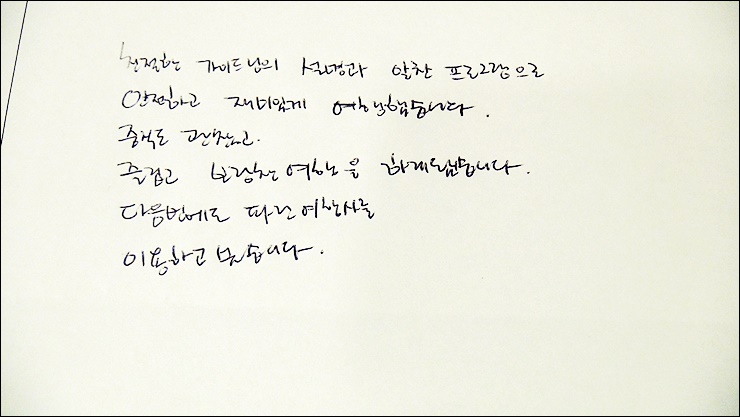 친절한 가이드님의 설명과 알찬 프로그램으로
안전하고 재미있게 여행했습니다.
음식도 괜찮고.
즐겁고 보람찬 여행을 하게됐습니다.
다음번에도 파란여행사를
이용하고 싶습니다.